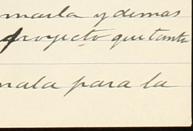 marla y demas
proyecto que tanto
mala para la